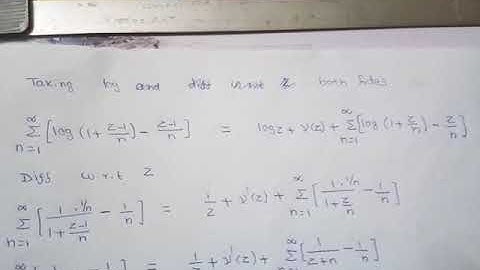 Taking log and diff w.r.t z both sides
∞∑n=1 [log (1+ z-1/n) - z-1/n] = log z + ν(z) + ∞∑n=1 [log (1+ z/n) - z/n]
Diff w.r.t z
∞∑n=1 [1 . 1/n / 1+ z-1/n - 1/n] = 1/z + ν'(z) + ∞∑n=1 [1 . 1/n / 1+ z/n - 1/n]
= 1/z + ν'(z) + ∞∑ [1/z+n - 1/n]